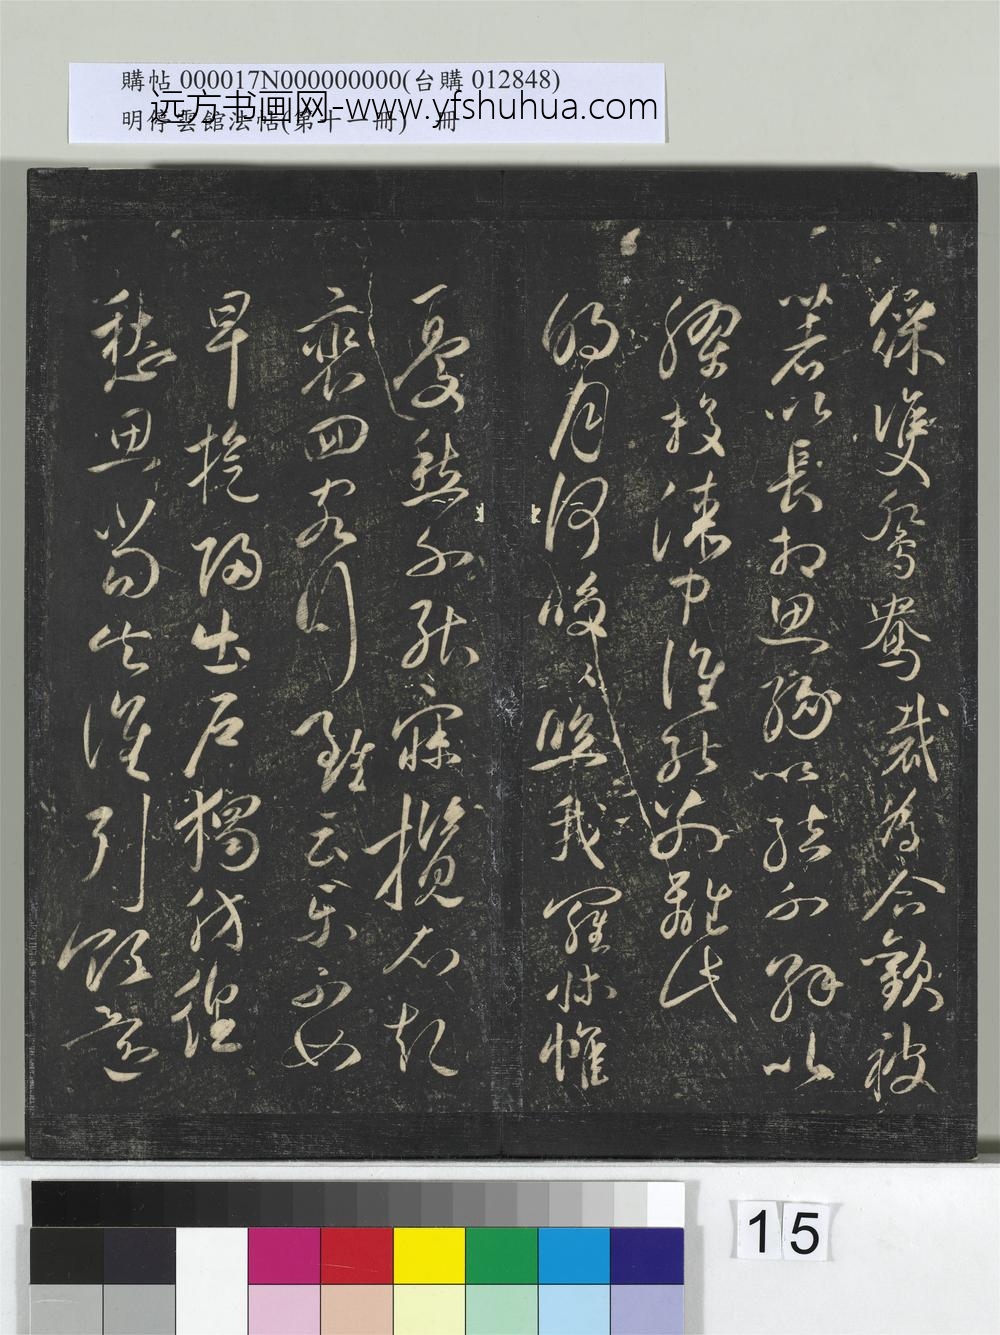 購帖 000017N000000000(台購 012848)
远方书画网-www.yfshuhua.com
明停雲館法帖(第十一冊) 冊
綵雙鴛鴦裁為合歡被
著以長相思緣以結不解以
膠投漆中誰能別離此
明月何皎々照我羅床帷
憂愁不能寐攬衣起
裵回客行雖云樂不如
早旋歸出戶獨彷徨
愁思當告誰引領還
15